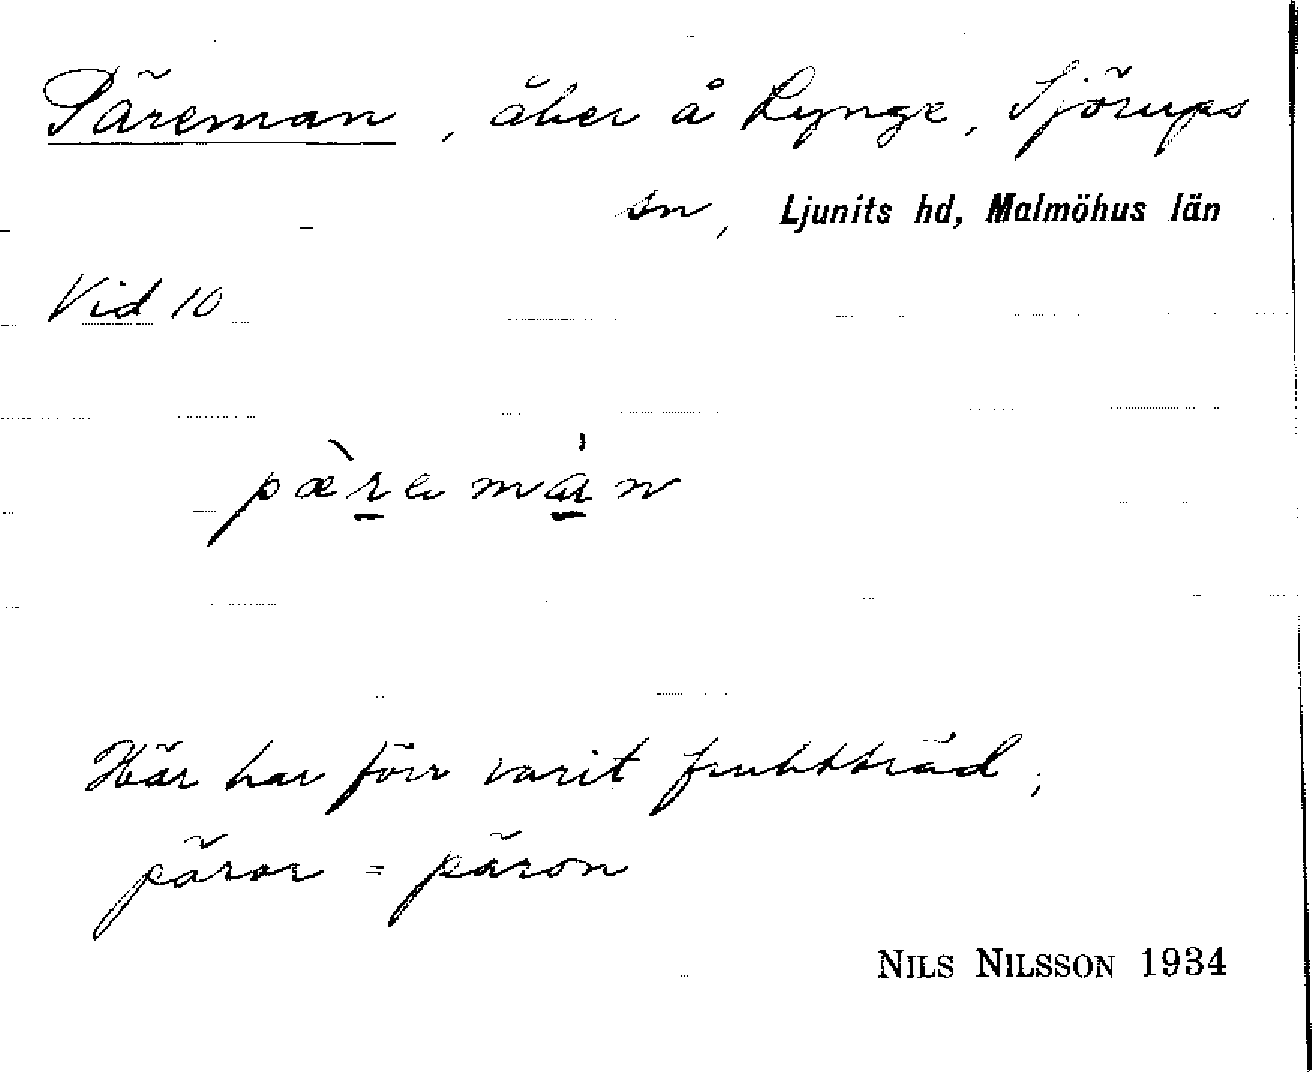 Päreman, åker å Lynge, Sjörups
sn, Ljunits hd, Malmöhus län
Vid 10
pæ̀remán
Här har förr varit fruktträd,
pärar = päron
NILS NILSSON 1934